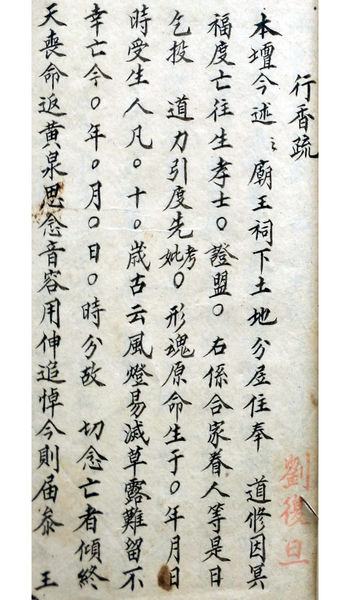 行香疏
本壇今述〻廟王祠下土地分居住奉　道修因冥
福度亡往生孝士〇證盟〇右係合家眷人等是日
乞投　道力引度先考妣〇形魂原命生于〇年月日
時受生人凡〇十〇歲古云風燈易滅草露難留不
幸亡今〇年〇月〇日〇時分故　切念亡者傾終
天喪命返黃泉思念音容用伸追悼今則届叅　王
劉復旦